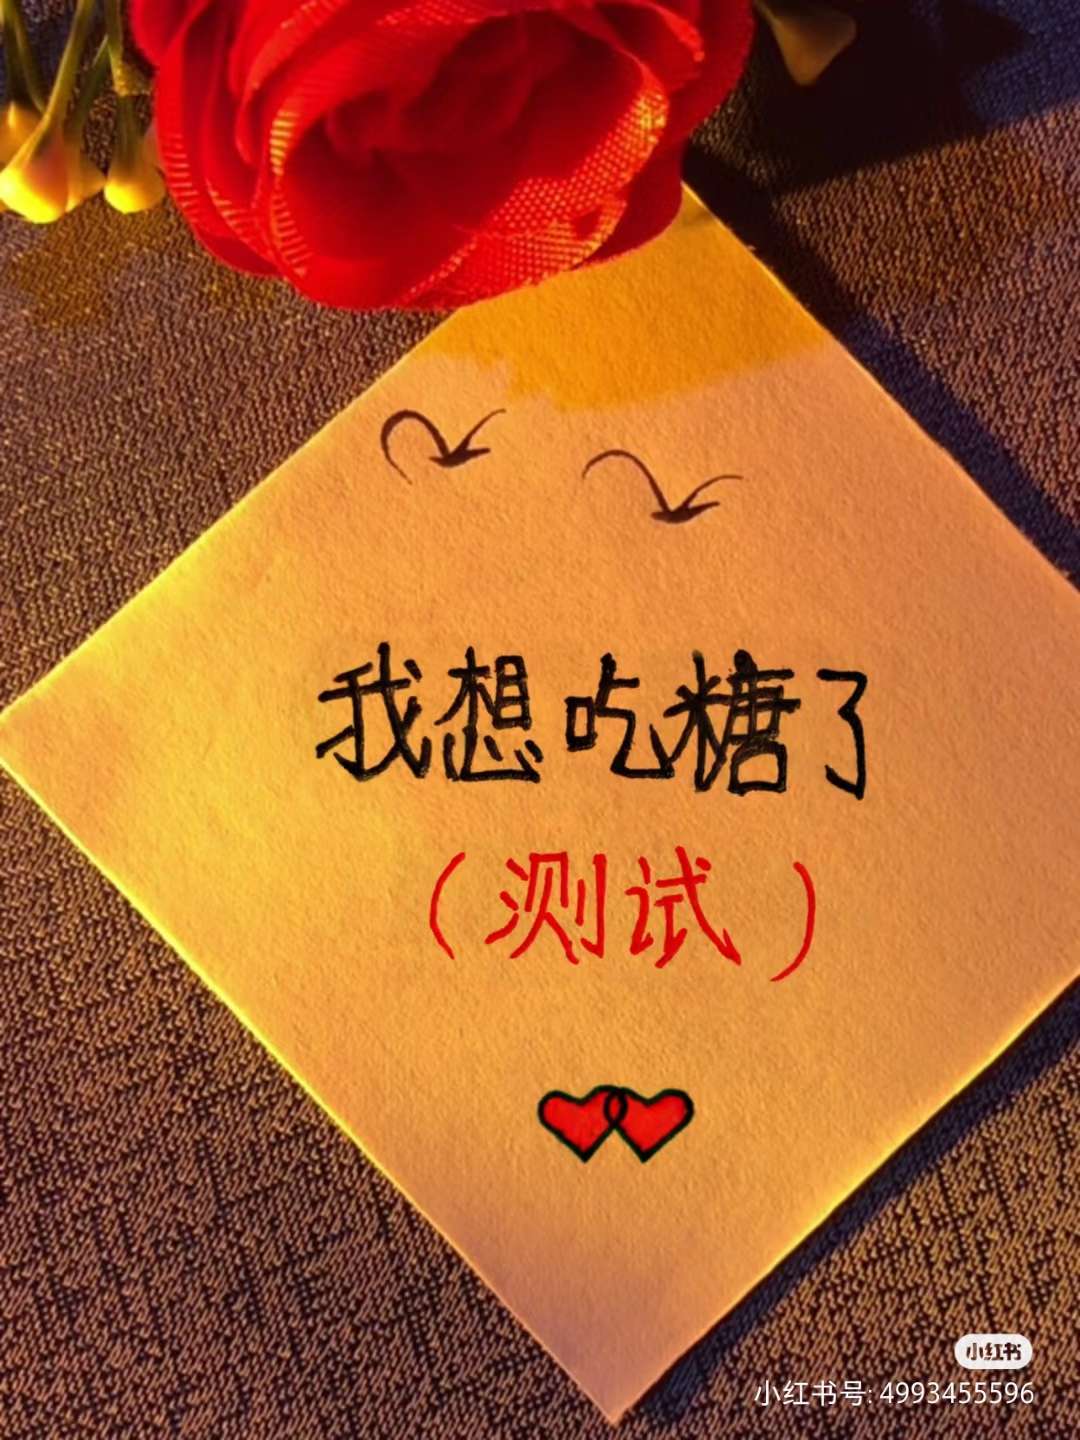 我想吃糖了
（测试）
小红书
小红书号: 4993455596